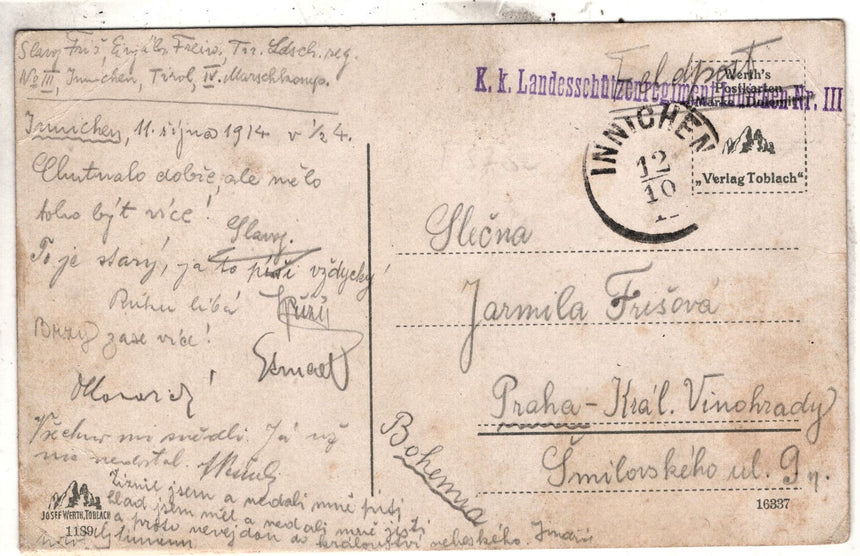 Slavoj Friš Einjähr. Freiw. Tir. Ldsch. reg.
No III, Innichen, Tirol, IV. Marschkomp.
Feldpost
K. k. Landesschützenregiment Innichen Nr. III
Werth's
Postkarten
Marke
INNICHEN
12
10
„Verlag Toblach"
Innichen, 11. října 1914 v ½ 4.
Chutnalo dobře, ale mělo
toho být více!
Slavoj.
To je starý, já to píši vždycky!
Ruku líbá
Brzy zase více!
Všechno mi snědli. Já už
nic nedostal.
Žíznil jsem a nedali mně píti,
hlad jsem měl a nedali mně jísti,
a proto nevejdou do království nebeského.
Slečna
Jarmila Frišová
Praha-Král. Vinohrady
Šmilovského ul. 9
Bohemia
JOSEF WERTH, TOBLACH
1189
16337